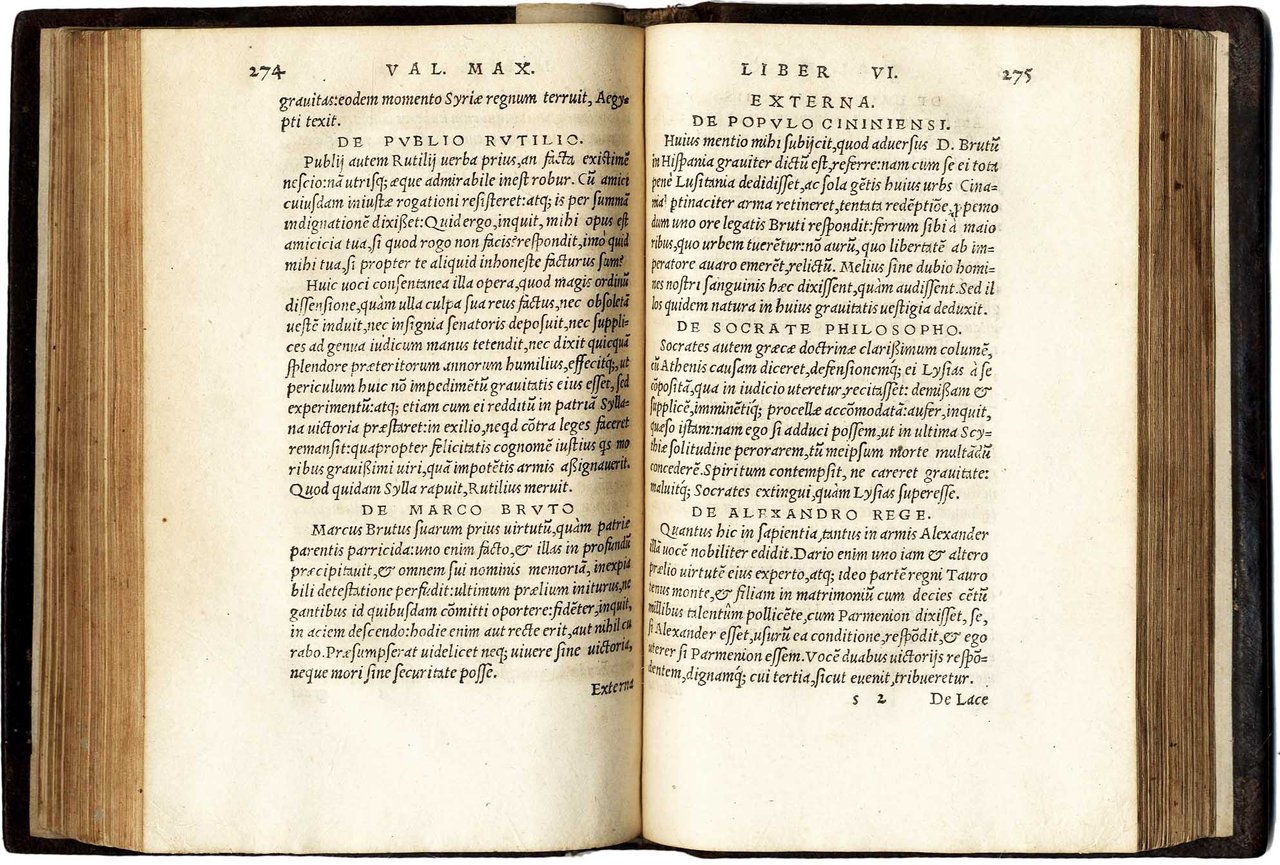 274 VAL. MAX.
grauitas:eodem momento Syriæ regnum terruit, Aegy-
pti texit.
DE PVBLIO RVTILIO.
Publij autem Rutilij uerba prius,an facta existimē
nescio:nā utrisq; æque admirabile inest robur. Cū amici
cuiusdam iniustæ rogationi resisteret:atq; is per summā
indignationē dixisset:Quid ergo,inquit, mihi opus est
amicicia tua,si quod rogo non facis?respondit,imò quid
mihi tua,si propter te aliquid inhoneste facturus sum?
Huic uoci consentanea illa opera,quod magis ordinū
dissensione,quàm ulla culpa sua reus factus,nec obsoletā
uestē induit,nec insignia senatoris deposuit,nec suppli-
ces ad genua iudicum manus tetendit,nec dixit quicquā
splendore præteritorum annorum humilius,effecitq;,ut
periculum huic nō impedimētū grauitatis eius esset, sed
experimentū:atq; etiam cum ei redditū in patriā Sylla-
na uictoria præstaret:in exilio,neqd cōtra leges faceret
remansit:quapropter felicitatis cognomē iustius qs mo
ribus grauißimi uiri,quā impotētis armis aßignauerit.
Quod quidam Sylla rapuit,Rutilius meruit.
DE MARCO BRVTO
Marcus Brutus suarum prius uirtutū,quàm patriæ
parentis parricida:uno enim facto,& illas in profundū
præcipitauit,& omnem sui nominis memoriā, inexpia
bili detestatione perfudit:ultimum prælium initurus,ne
gantibus id quibusdam cōmitti oportere:fidēter,inquit,
in aciem descendo:hodie enim aut recte erit,aut nihil cu
rabo.Præsumpserat uidelicet neq; uiuere sine uictoria,
neque mori sine securitate posse.
Externa
LIBER VI. 275
EXTERNA.
DE POPVLO CININIENSI.
Huius mentio mihi subijcit,quod aduersus D. Brutū
in Hispania grauiter dictū est,referre:nam cum se ei tota
penè Lusitania dedidisset,ac sola gētis huius urbs Cina-
nia ptinaciter arma retineret,tentata redēptiōe,ppemo
dum uno ore legatis Bruti respondit:ferrum sibi à maio
ribus,quo urbem tuerētur:nō aurū,quo libertatē ab im-
peratore auaro emerēt,relictū. Melius sine dubio homi-
nes nostri sanguinis hæc dixissent,quàm audissent.Sed il
los quidem natura in huius grauitatis uestigia deduxit.
DE SOCRATE PHILOSOPHO.
Socrates autem græcæ doctrinæ clarißimum columē,
cū Athenis causam diceret,defensionemq; ei Lysias à se
cōpositā,qua in iudicio uteretur,recitasset: demissam &
supplicē,imminētiq; procellæ accōmodatā:aufer,inquit,
quæso istam:nam ego si adduci possem,ut in ultima Scy-
thiæ solitudine perorarem,tū meipsum morte multādū
concederē.Spiritum contempsit, ne careret grauitate:
maluitq; Socrates extingui,quàm Lysias superesse.
DE ALEXANDRO REGE.
Quantus hic in sapientia,tantus in armis Alexander
illā uocē nobiliter edidit.Dario enim uno iam & altero
prælio uirtutē eius experto,atq; ideo partē regni Tauro
tenus monte,& filiam in matrimoniū cum decies cētū
millibus talentûm pollicēte, cum Parmenion dixisset, se,
si Alexander esset,usurū ea conditione,respōdit,& ego
uterer si Parmenion essem.Vocē duabus uictorijs respō-
dentem,dignamq; cui tertia,sicut euenit,tribueretur.
s 2 De Lace